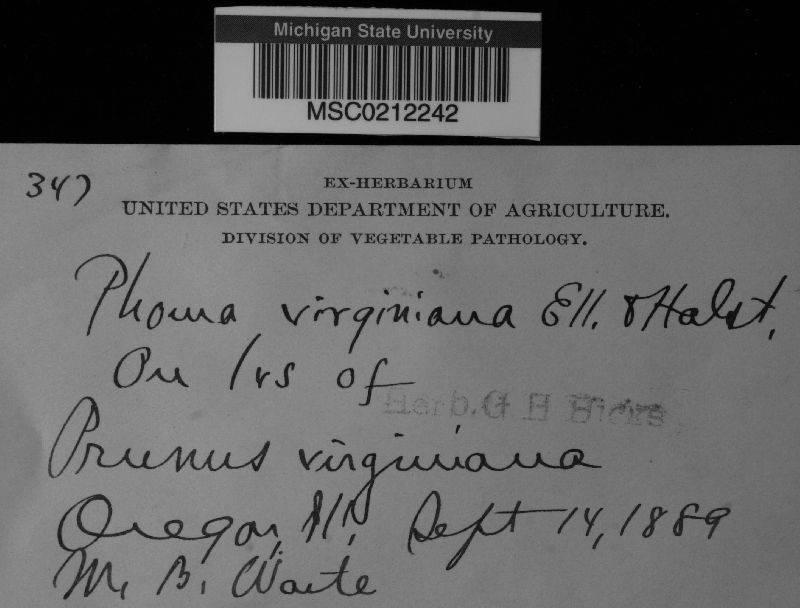 Michigan State University
MSC0212242
347
EX-HERBARIUM
UNITED STATES DEPARTMENT OF AGRICULTURE.
DIVISION OF VEGETABLE PATHOLOGY.
Phoma virginiana Ell. & Halst.
On lvs of
Herb. G H Hicks
Prunus virginiana
Oregon, Ill. Sept 14, 1889
M. B. Waite